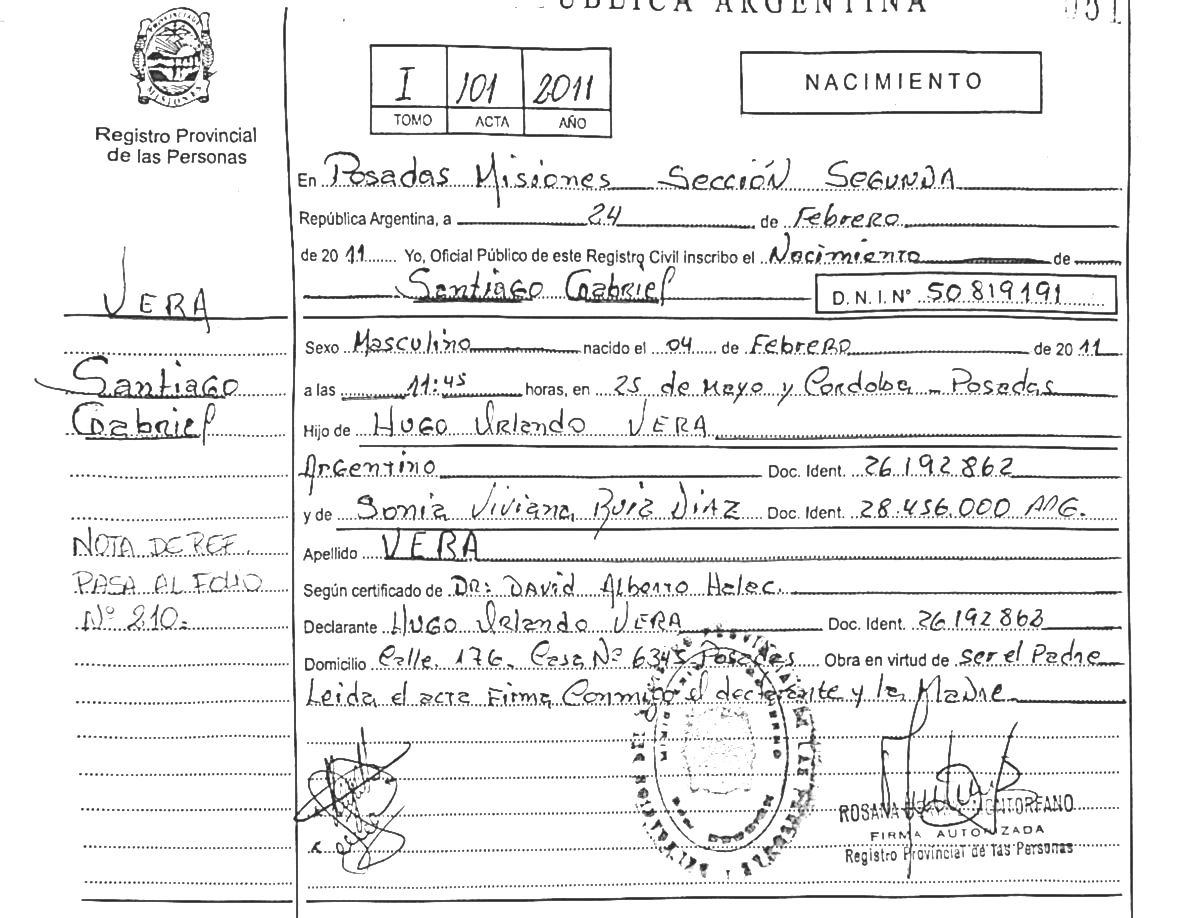 REPUBLICA ARGENTINA
051
PROVINCIA DE MISIONES
Registro Provincial
de las Personas
I 101 2011
TOMO ACTA AÑO
NACIMIENTO
En Posadas Misiones Sección Segunda
República Argentina, a 24 de Febrero
de 2011 Yo, Oficial Público de este Registro Civil inscribo el Nacimiento de
Santiago Gabriel D.N.I.Nº 50.819.191
Sexo Masculino nacido el 04 de Febrero de 2011
a las 11:45 horas, en 25 de Mayo y Cordoba - Posadas
Hijo de Hugo Orlando VERA
Argentino Doc. Ident. 26.192.862
y de Sonia Viviana Ruiz Diaz Doc. Ident. 28.456.000 ARG.
Apellido VERA
Según certificado de DR: David Alberto Halac.
Declarante Hugo Orlando VERA Doc. Ident. 26.192.862
Domicilio Calle 176. Casa Nº 6345 Posadas Obra en virtud de ser el Padre
Leida el acta Firma Conmigo el declarante y la Madre
VERA
Santiago
Gabriel
NOTA DE REF.
PASA AL FOLIO
Nº 210.
ROSANA MONTORFANO
FIRMA AUTORIZADA
Registro Provincial de las Personas